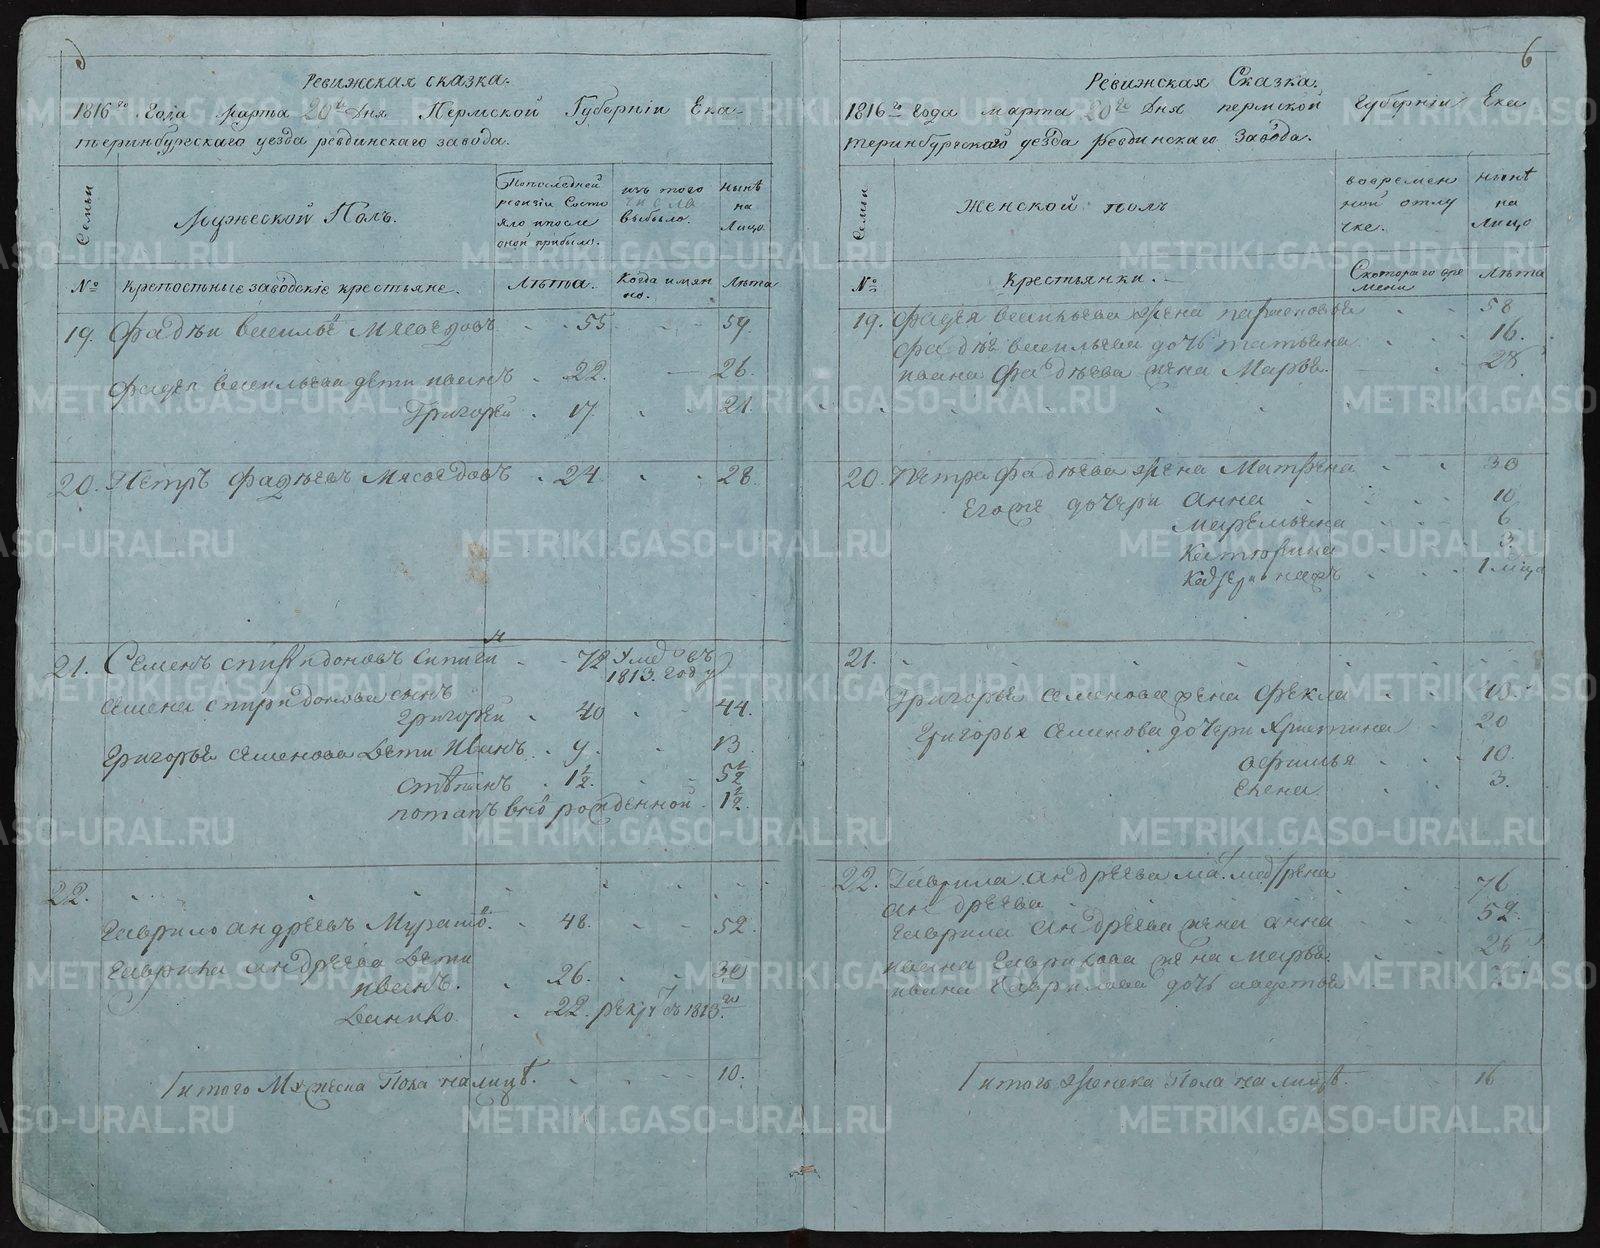 6
Ревижская сказка.
1816го Года марта 20го Дня Пермской Губернїи Ека
теринбургскаго уезда ревдинскаго завода.
Семьи
Мужеской Полъ.
Попоследней ревизїи Состояло ипосле оной прибыло.
изъ того числа выбыло.
нынѣ на Лицо
№
крепостные заводскїе крестьяне.
Лѣта.
Когда имянно.
Лѣта
19. Фадѣи василье Мясоедовъ 55 59.
Фадея васильева дети иванъ 22. 26.
Григорей 17. 21.
20. Петръ Фадѣевъ Мясоедовъ 24 28.
21. Семенъ спиридоновъ 72 Умеръ въ
1813. году
семена спиридонова сынъ
григорей 40 44.
григорья семенова дети Иванъ 9. 13
степанъ 1½ 5½
потапъ рожденной 1½
22.
гаврило андреевъ 48. 52.
гаврила андреева дети
иванъ. 26. 30
данило 22. рекрут въ 1813го
Итого Мужеска Пола налицѣ. 10.
Ревижская Сказка.
1816го Года марта 20го Дня пермской Губернїи Ека
теринбургскаго уезда ревдинскаго Завода.
Семьи
Женской полъ
вовременной отлучке.
нынѣ на Лицо
№
крестьянки.
Скотораго времени
Лѣта
19. Фадея васильева жена 58
Фадѣя васильева дочь татьяна 16.
ивана Фадѣева жена Марфа 28
20. Петра Фадѣева жена Матрена 30
Егоже дочери анна 10
маремьяна 6
Катюрина 3.
1 мца
21.
григорья семенова жена Фекла
григорья семенова дочери христина 20
афимья 10.
елена 3.
22. Гаврила андреева
андреева 76
гаврила андреева жена анна 52.
ивана гаврилова жена марфа
ивана гаврилова дочь
Итого женска Пола налицѣ. 16
METRIKI.GASO-URAL.RU